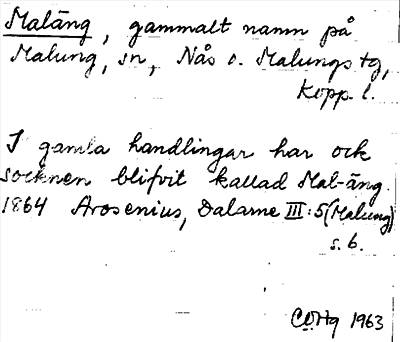 Maläng, gammalt namn på
Malung, sn, Nås o. Malungs tg,
Kopp. l.
I gamla handlingar har ock
socknen blifvit kallad Mal-äng.
1864 Arosenius, Dalarne III:5 (Malung)
s. 6.
1963